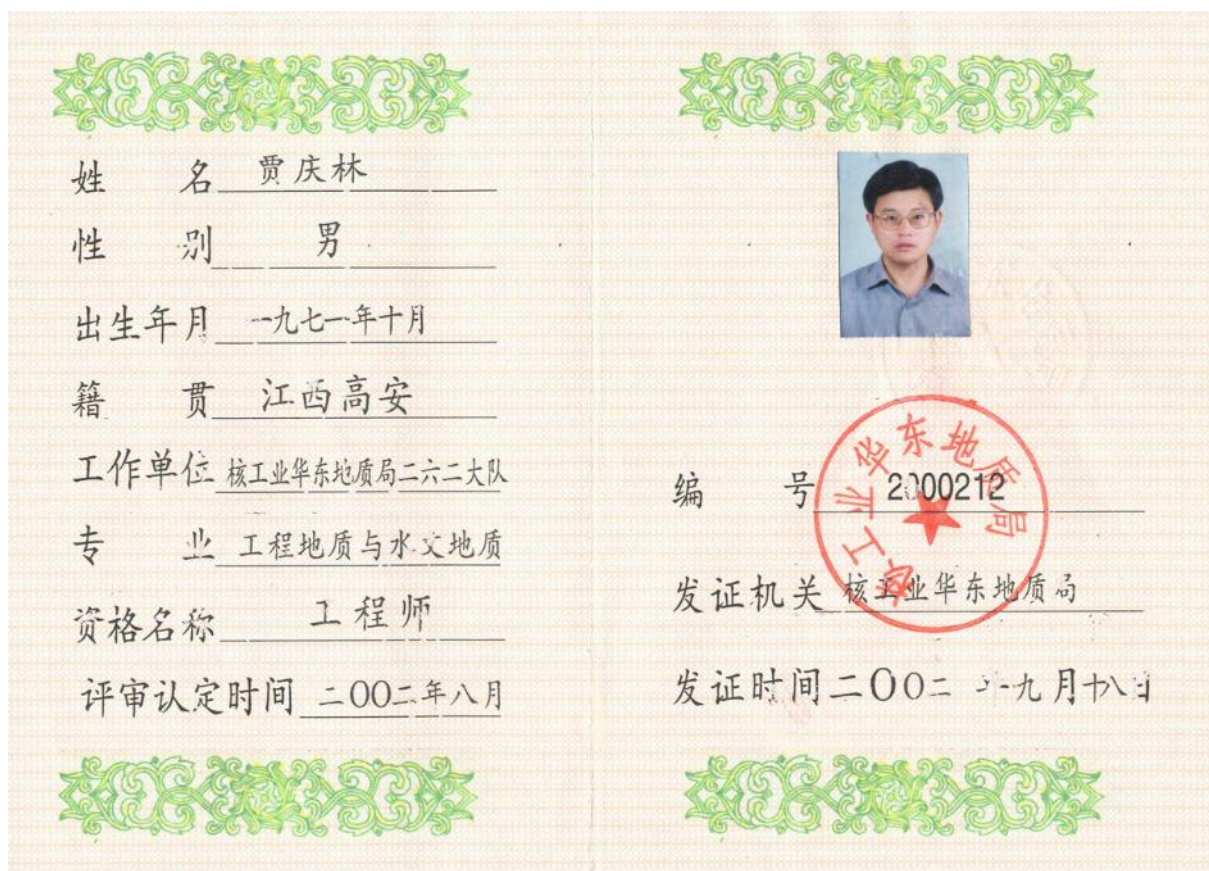 姓名 贾庆林
性别 男
出生年月 一九七一年十月
籍贯 江西高安
工作单位 核工业华东地质局二六二大队
专业 工程地质与水文地质
资格名称 工程师
评审认定时间 二00二年八月
核工业华东地质局
编号 2000212
发证机关 核工业华东地质局
发证时间 二00二年九月十八日